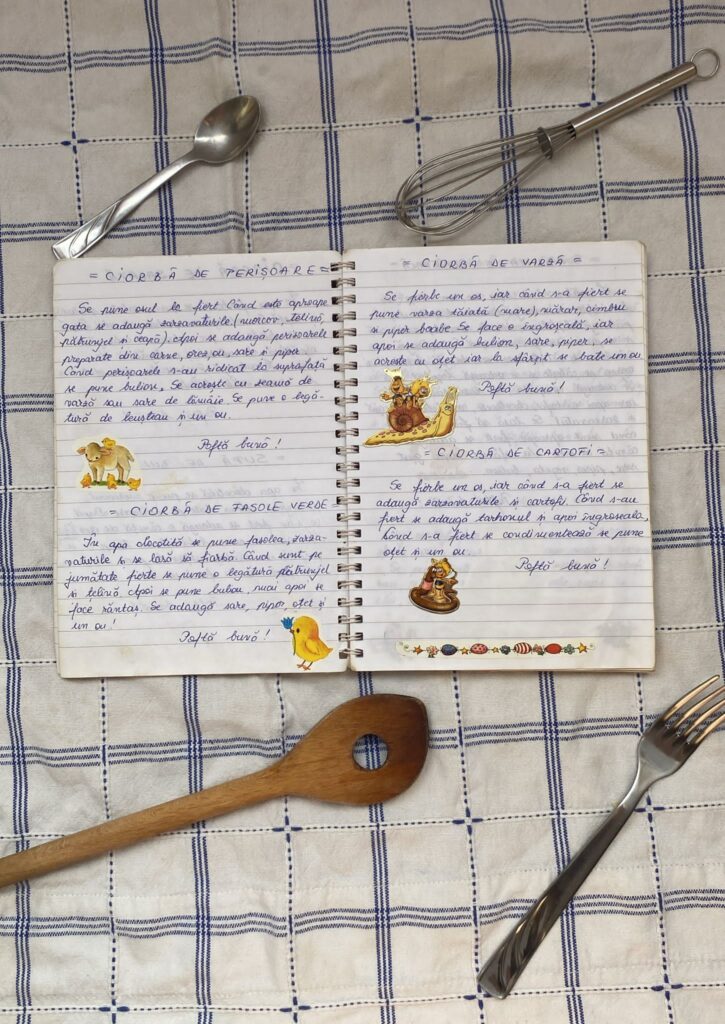 = CIORBĂ DE PERIȘOARE =
Se pune osul la fiert Când este aproape
gata se adaugă zarzavaturile (morcov, țelină,
pătrunjel și ceapă). Apoi se adaugă perișoarele
preparate din carne, orez, ou, sare și piper.
Când perișoarele s-au ridicat la suprafață
se pune bulion. Se acrește cu zeamă de
varză sau sare de lămâie. Se pune o legă-
tură de leuștean și un ou.
Poftă bună !
= CIORBĂ DE FASOLE VERDE =
În apa clocotită se pune fasolea, zarza-
vaturile și se lasă să fiarbă Când sunt pe
jumătate fierte se pune o legătură pătrunjel
și țelină. Apoi se pune bulion, roșii apoi se
face rântaș. Se adaugă sare, piper, oțet și
un ou !
Poftă bună !
= CIORBĂ DE VARZĂ =
Se fierbe un os, iar când s-a fiert se
pune varza tăiată (mare), mărar, cimbru
și piper boabe Se face o îngroșeală, iar
apoi se adaugă bulion, sare, piper, se
acrește cu oțet iar la sfârșit se bate un ou.
Poftă bună !
= CIORBĂ DE CARTOFI =
Se fierbe un os, iar când s-a fiert se
adaugă zarzavaturile și cartofi. Când s-au
fiert se adaugă tarhonul și apoi îngroșeala,
Când s-a fiert se condimentează se pune
oțet și un ou.
Poftă bună !